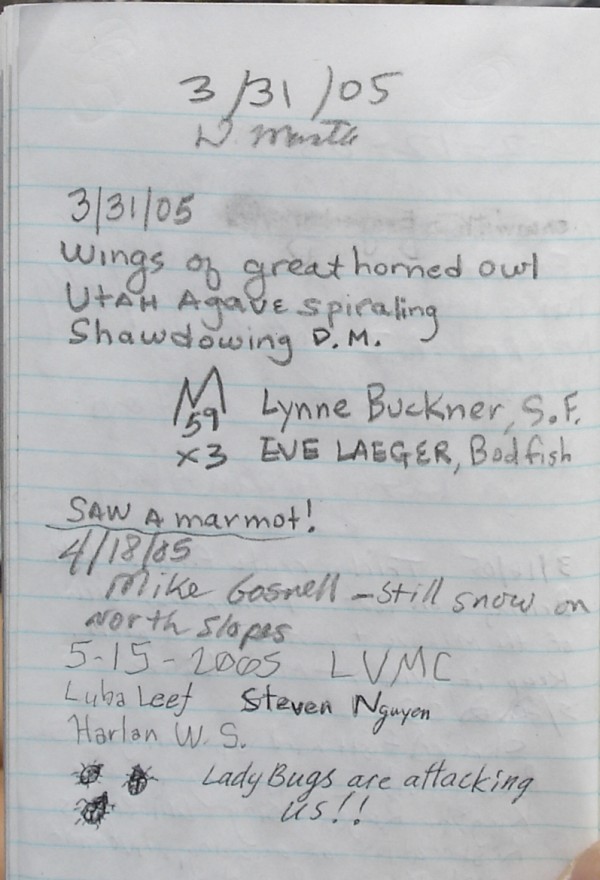 3/31/05
3/31/05
Wings of great horned owl
UtAH AgavE spiraling
Shawdowing D.M.
M Lynne Buckner, S.F.
59
x3 EVE LAEGER, Bodfish
SAW A marmot!
4/18/05
Mike Gosnell - still snow on
North slopes
5-15-2005 LVMC
Luba Leef Steven Nguyen
Harlan W. S.
LadyBugs are attacking
us!!